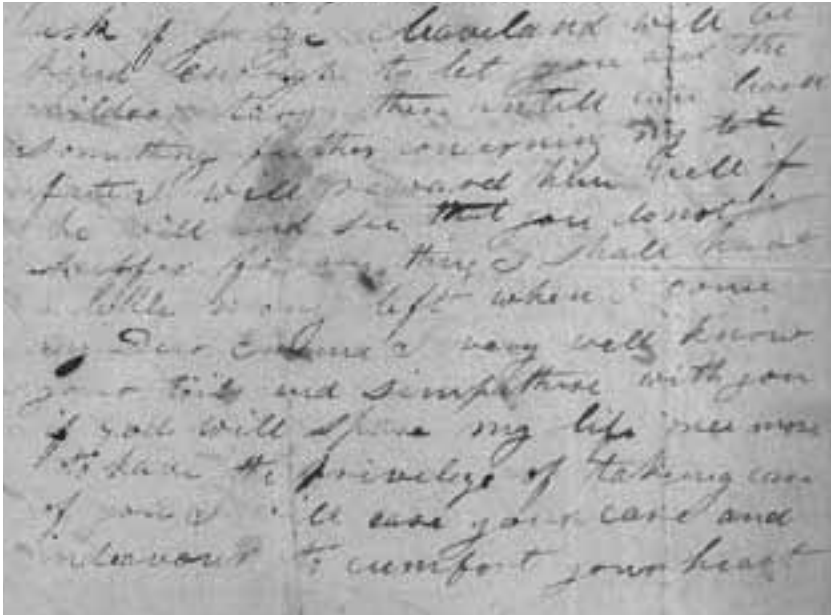 ask if Judge Cleaveland will be
kind enough to let you and the
children tary there untill you hear
something further concerning the
fate I will reward him well if
he will and see that you do not
suffer for any thing I shall have
a little mony left when I come
my Dear Emma I very well know
your toils and simpathise with you
if god will spare my life once more
to have the privelege of takeing care
of you I will ease your care and
indeavour to cumfort your heart